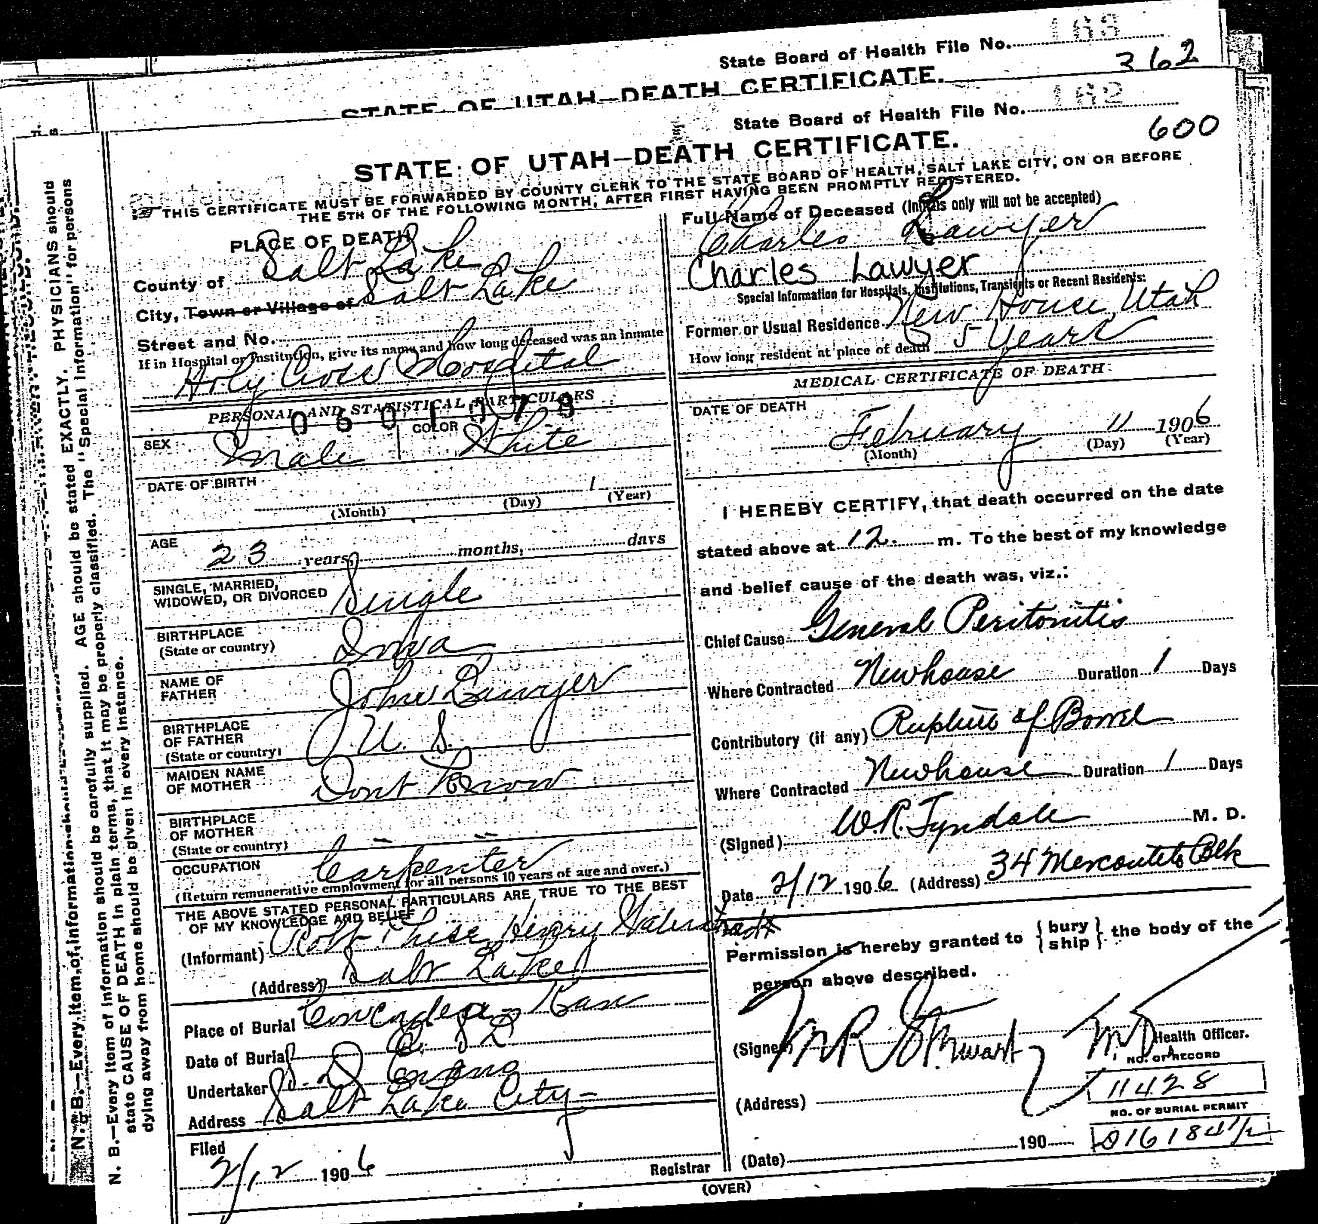 State Board of Health File No. 163
362
STATE OF UTAH—DEATH CERTIFICATE.
State Board of Health File No. 162
600
STATE OF UTAH—DEATH CERTIFICATE.
THIS CERTIFICATE MUST BE FORWARDED BY COUNTY CLERK TO THE STATE BOARD OF HEALTH, SALT LAKE CITY, ON OR BEFORE
THE 5TH OF THE FOLLOWING MONTH, AFTER FIRST HAVING BEEN PROMPTLY REGISTERED.
N. B.—Every item of information should be carefully supplied. AGE should be stated EXACTLY. PHYSICIANS should
state CAUSE OF DEATH in plain terms, that it may be properly classified. The "Special Information" for persons
dying away from home should be given in every instance.
PLACE OF DEATH
County of Salt Lake
City, Town or Village of Salt Lake
Street and No.
If in Hospital or Institution, give its name and how long deceased was an inmate
Holy Cross Hospital
PERSONAL AND STATISTICAL PARTICULARS
0601078
SEX Male COLOR White
DATE OF BIRTH 1
(Month) (Day) (Year)
AGE 23 years, months, days
SINGLE, MARRIED,
WIDOWED, OR DIVORCED Single
BIRTHPLACE
(State or country) Iowa
NAME OF
FATHER John Lawyer
BIRTHPLACE
OF FATHER
(State or country) U. S.
MAIDEN NAME
OF MOTHER Dont Know
BIRTHPLACE
OF MOTHER
(State or country) " "
OCCUPATION Carpenter
(Return remunerative employment for all persons 10 years of age and over.)
THE ABOVE STATED PERSONAL PARTICULARS ARE TRUE TO THE BEST
OF MY KNOWLEDGE AND BELIEF
(Informant) Henry
(Address) Salt Lake
Place of Burial Kan
Date of Burial
Undertaker S. D. Evans
Address Salt Lake City
Filed
2/12 1906 Registrar
Full Name of Deceased (Initials only will not be accepted)
Charles Lawyer
Charles Lawyer
Special Information for Hospitals, Institutions, Transients or Recent Residents:
Former or Usual Residence New House Utah
How long resident at place of death 5 Years
MEDICAL CERTIFICATE OF DEATH
DATE OF DEATH
February 11 1906
(Month) (Day) (Year)
I HEREBY CERTIFY, that death occurred on the date
stated above at 12 m. To the best of my knowledge
and belief cause of the death was, viz.:
Chief Cause General Peritonitis
Where Contracted Newhouse Duration 1 Days
Contributory (if any) Rupture of Bowel
Where Contracted Newhouse Duration 1 Days
(Signed) W. R. Tyndale M. D.
Date 2/12 1906 (Address) 34 Mercantile Blk
Permission is hereby granted to { bury ship } the body of the
person above described.
(Signed) M R Stewart M D Health Officer.
NO. OF RECORD
11428
(Address)
NO. OF BURIAL PERMIT
(Date) 190
(OVER)